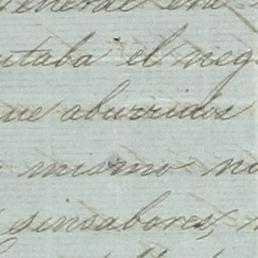 General
utaba el neg
ue aburridos
mismo no
sinsabores,